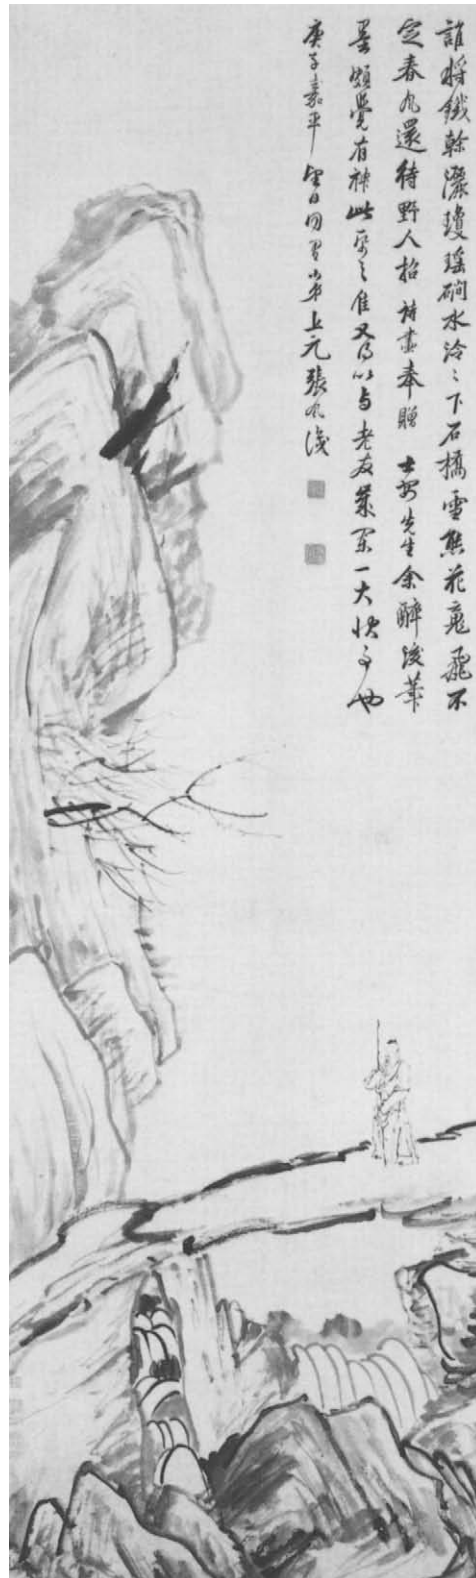 誰將鐵榦灑瓊瑤磵水泠〻下石橋雪態花魂飛不
定春風還待野人招 詩畫奉贈 先生余醉後筆
墨頗覺有神此之佳又得以与老友一大快事也
庚子嘉平望日同學小弟上元張風識